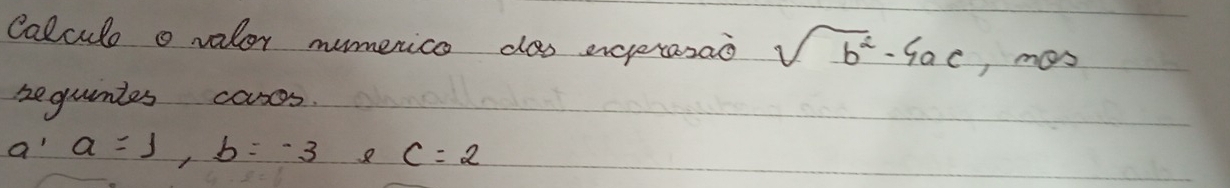 Calcule o valor numerico das experasaõ √b² - 4ac, nos
seguintes casos.
a' a = 1, b = -3 e c = 2